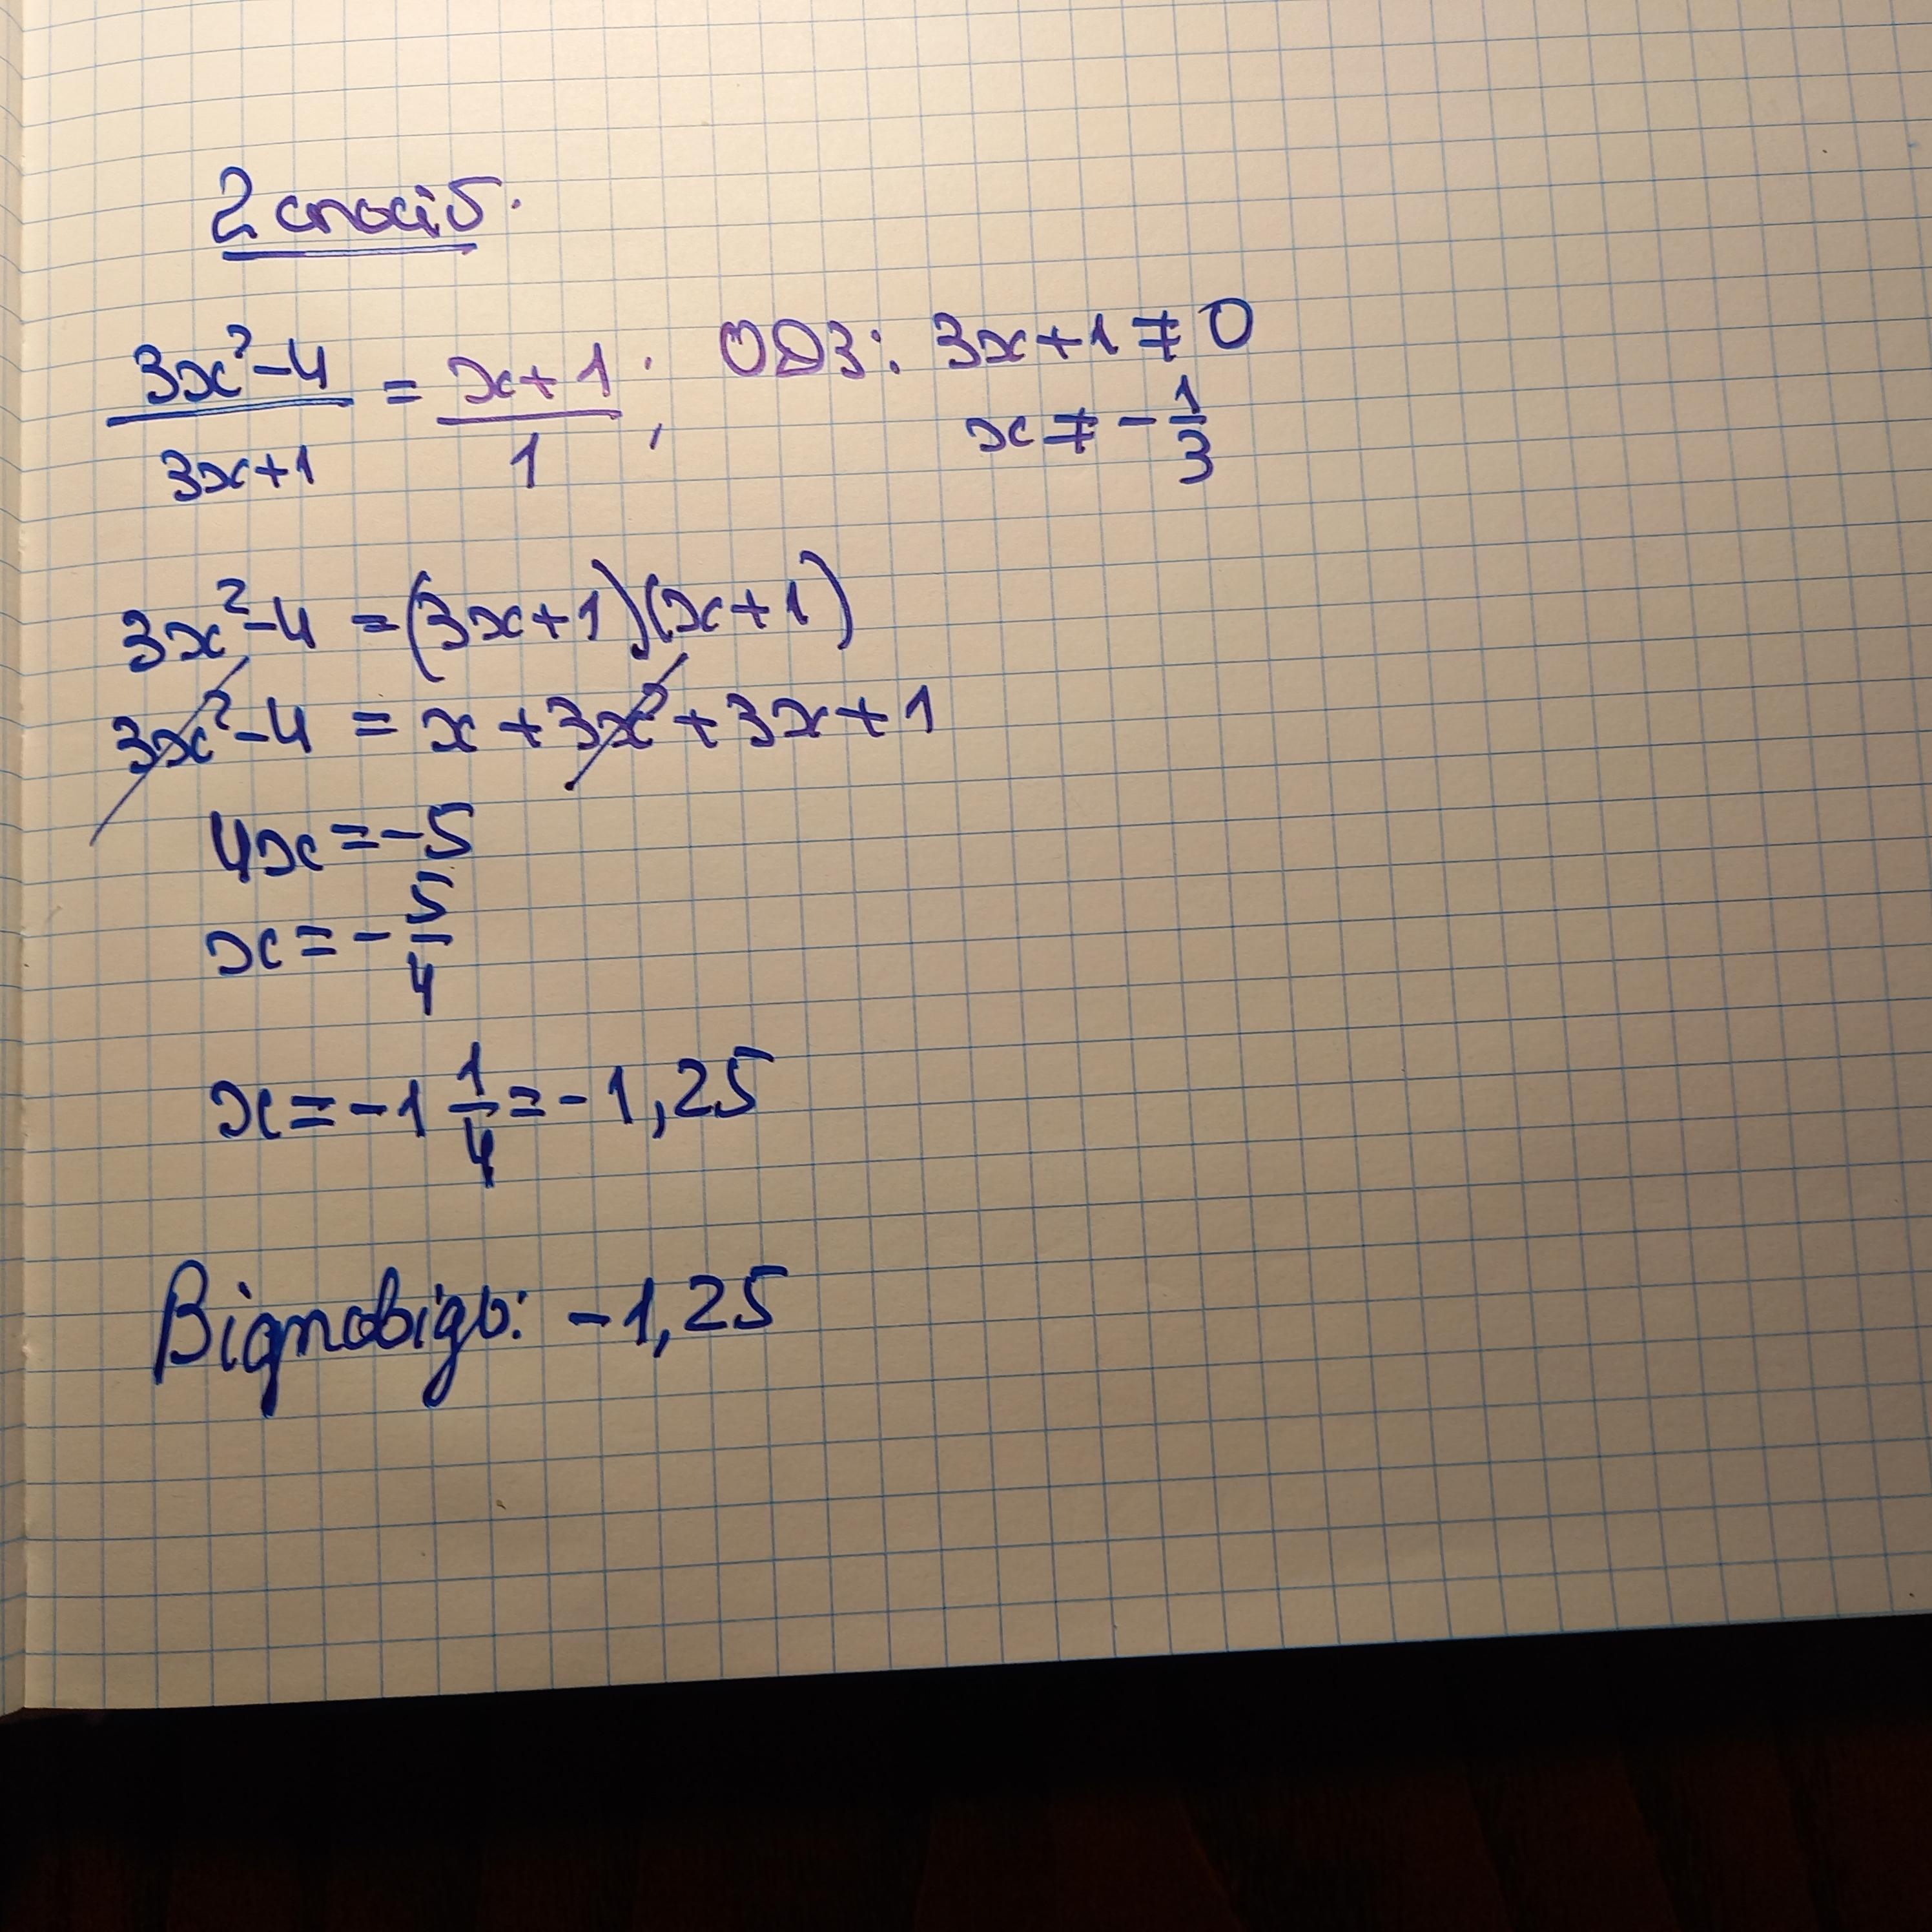 2 спосіб.
3x²-4/3x+1 = x+1/1; ОДЗ: 3x+1≠0
x≠-1/3
3x²-4=(3x+1)(x+1)
3x²-4=x+3x²+3x+1
4x=-5
x=-5/4
x=-1 1/4=-1,25
Відповідь: -1,25